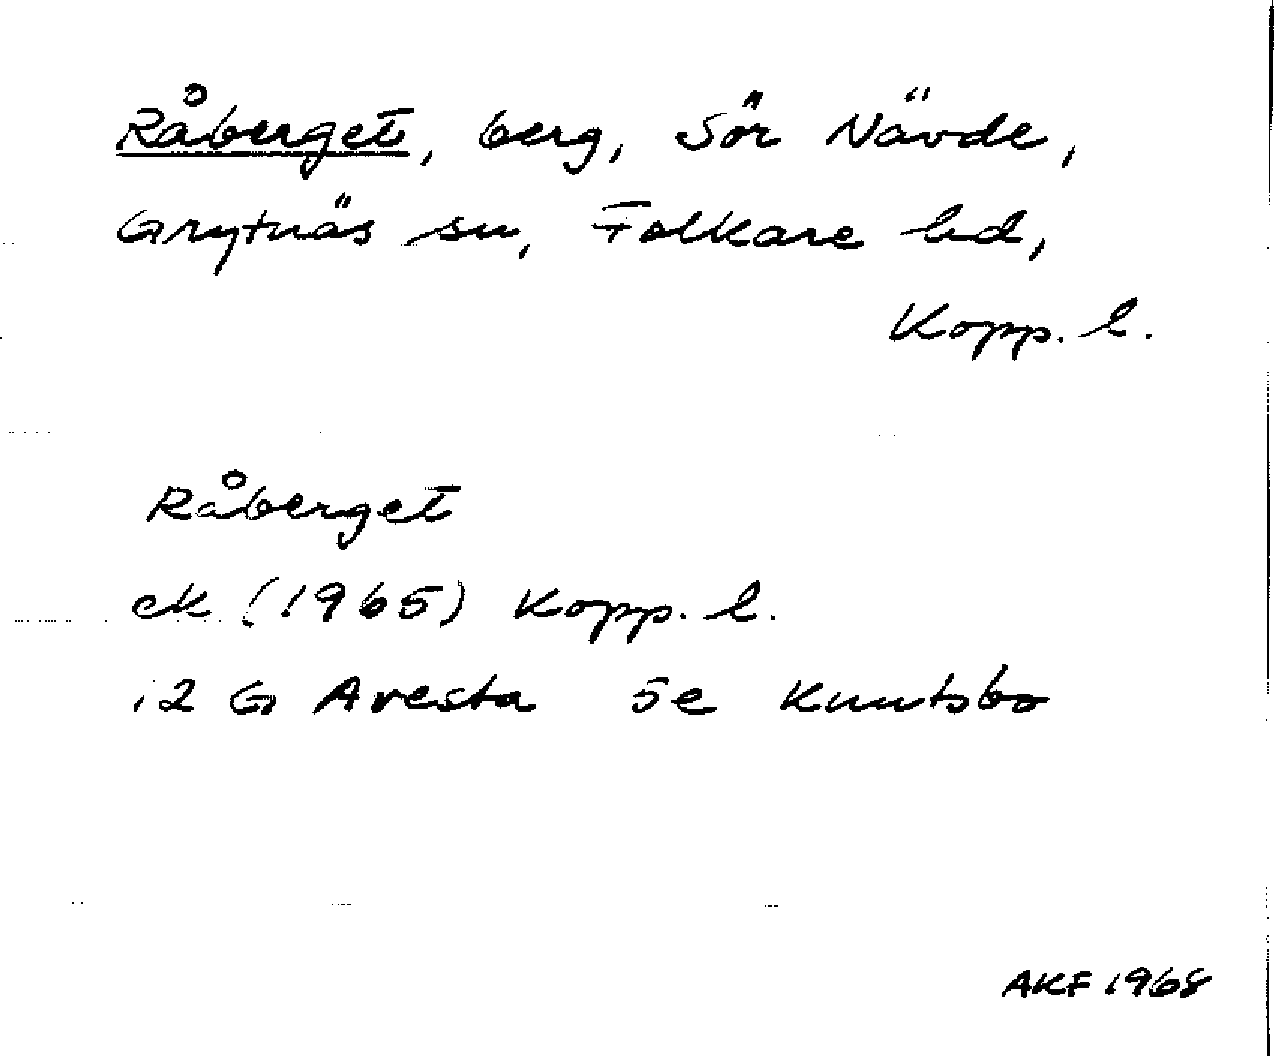 Råberget, berg, Sör Nävde,
Grytnäs sn, Folkare hd,
Kopp. l.
Råberget
ek (1965) Kopp. l.
12 G Avesta 5e Knutsbo
AKF 1968